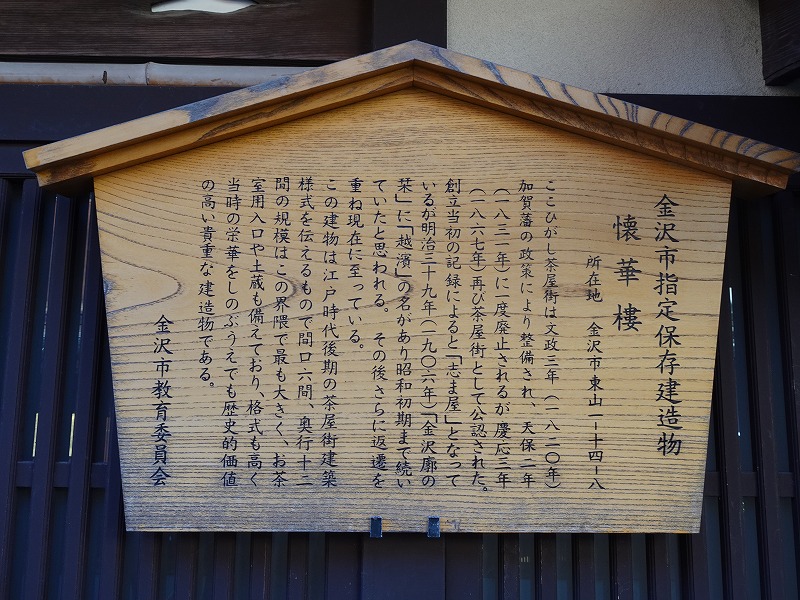 金沢市指定保存建造物
懐華樓
所在地　金沢市東山一ー十四ー八
ここひがし茶屋街は文政三年（一八二〇年）
加賀藩の政策により整備され、天保二年
（一八三一年）に一度廃止されるが慶応三年
（一八六七年）再び茶屋街として公認された。
創立当初の記録によると「志ま屋」となって
いるが明治三十九年（一九〇六年）「金沢廓の
栞」に「越濱」の名があり昭和初期まで続い
ていたと思われる。その後さらに返遷を
重ね現在に至っている。
この建物は江戸時代後期の茶屋街建築
様式を伝えるもので間口六間、奥行十二
間の規模はこの界隈で最も大きく、お茶
室用入口や土蔵も備えており、格式も高く
当時の栄華をしのぶうえでも歴史的価値
の高い貴重な建造物である。
金沢市教育委員会